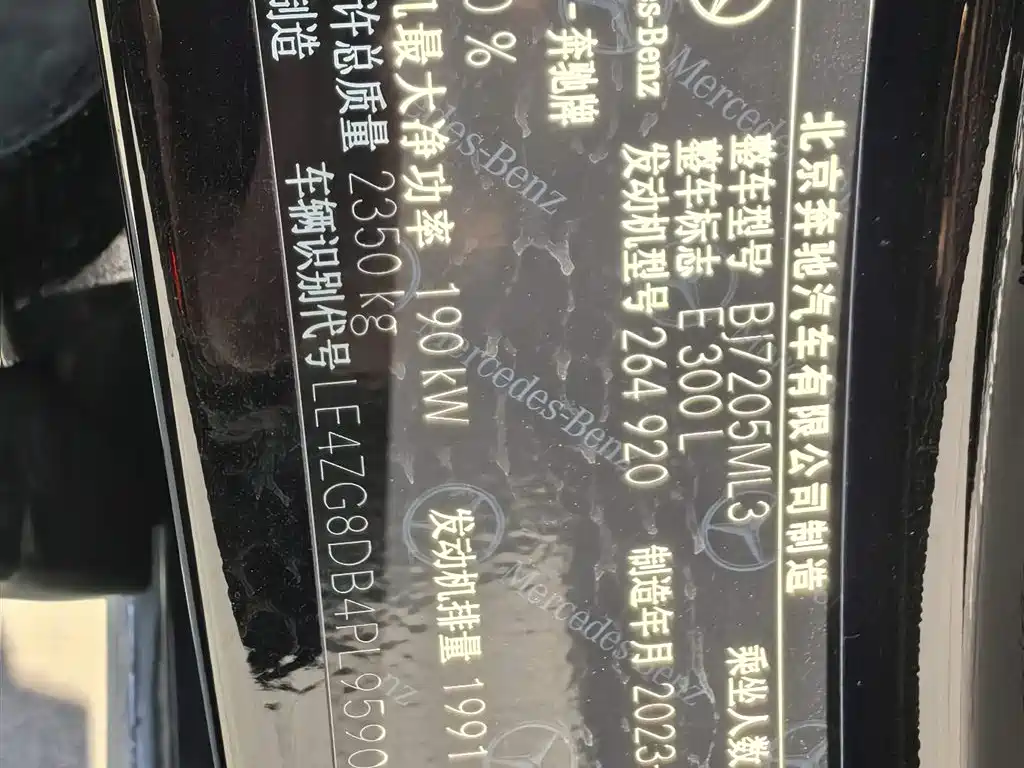 北京奔驰汽车有限公司制造
整车型号 BJ7205ML3 乘坐人数
整车标志 E 300 L
s-Benz 发动机型号 264 920 制造年月 2023-
奔驰牌
0 %
机最大净功率 190 kW 发动机排量 1991
许总质量 2350 kg
制造 车辆识别代号 LE4ZG8DB4PL9590